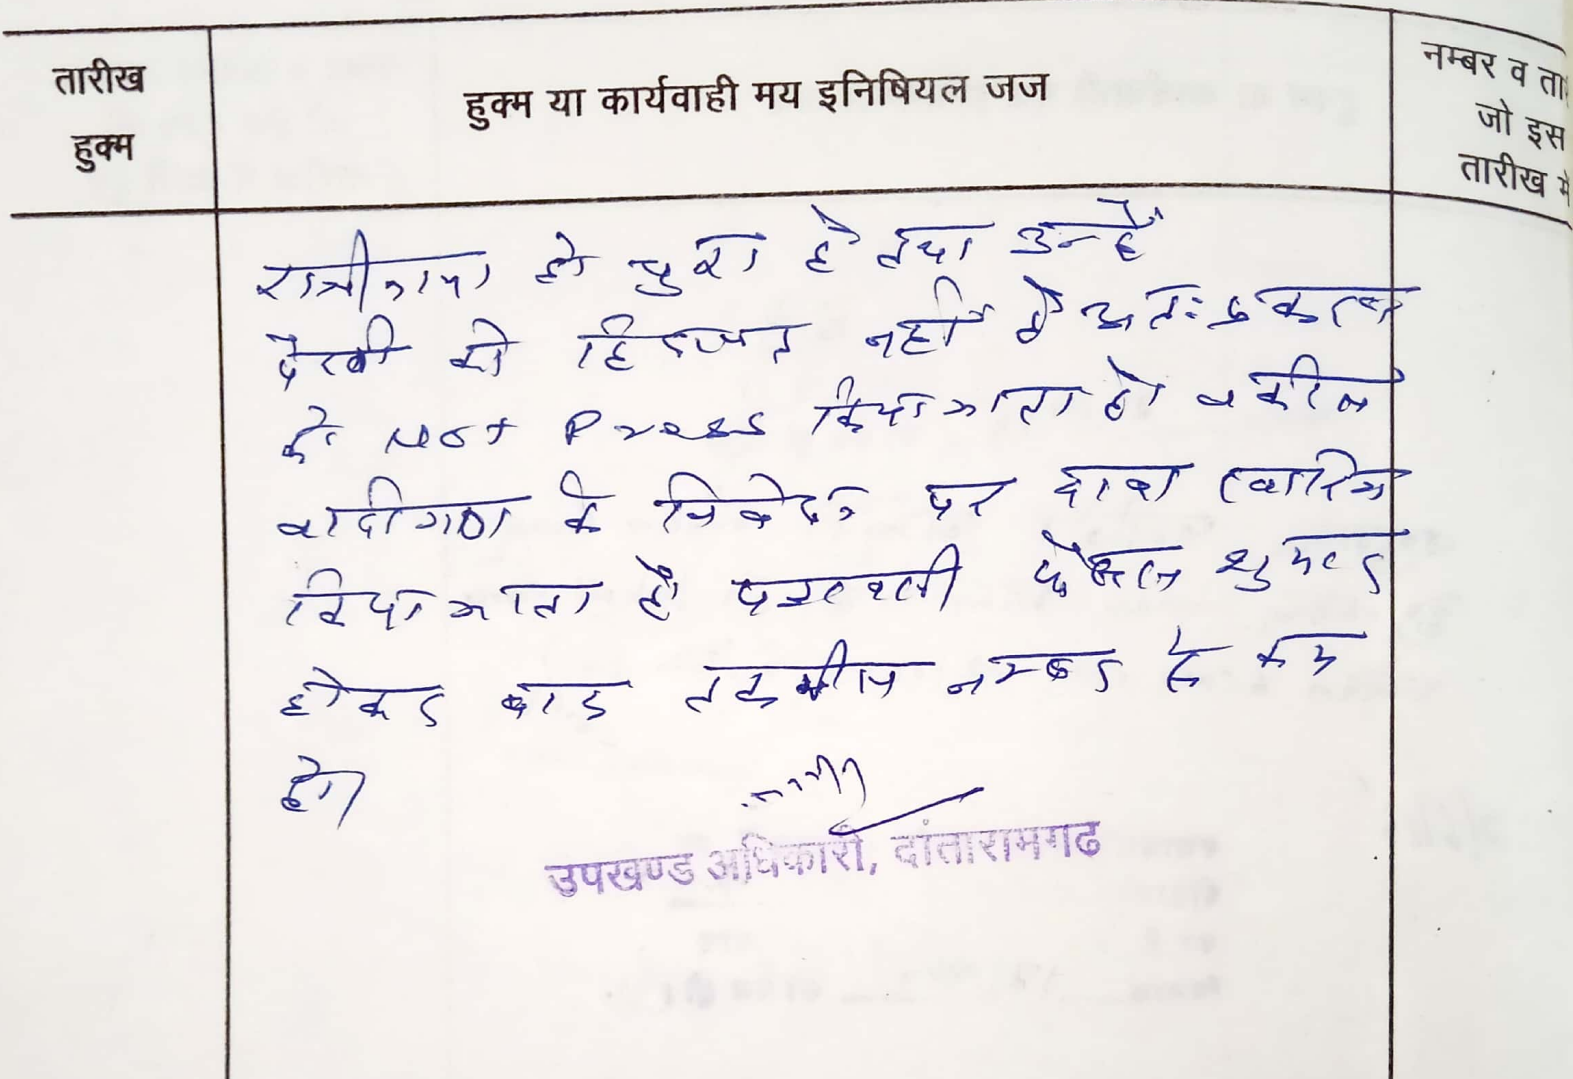 तारीख
हुक्म
हुक्म या कार्यवाही मय इनिषियल जज
नम्बर व ता
जो इस
तारीख में
राजीनामा हो चुका है तथा उन्हें
पैरवी की नहीं है अतः प्रकरण
को Not Press किया जाता है वकील
वादीगण के निवेदन पर दावा खारिज
किया जाता है पत्रावली फैसल शुमार
होकर बाद तकमील नम्बर से कम
हो।
उपखण्ड अधिकारी, दांतारामगढ